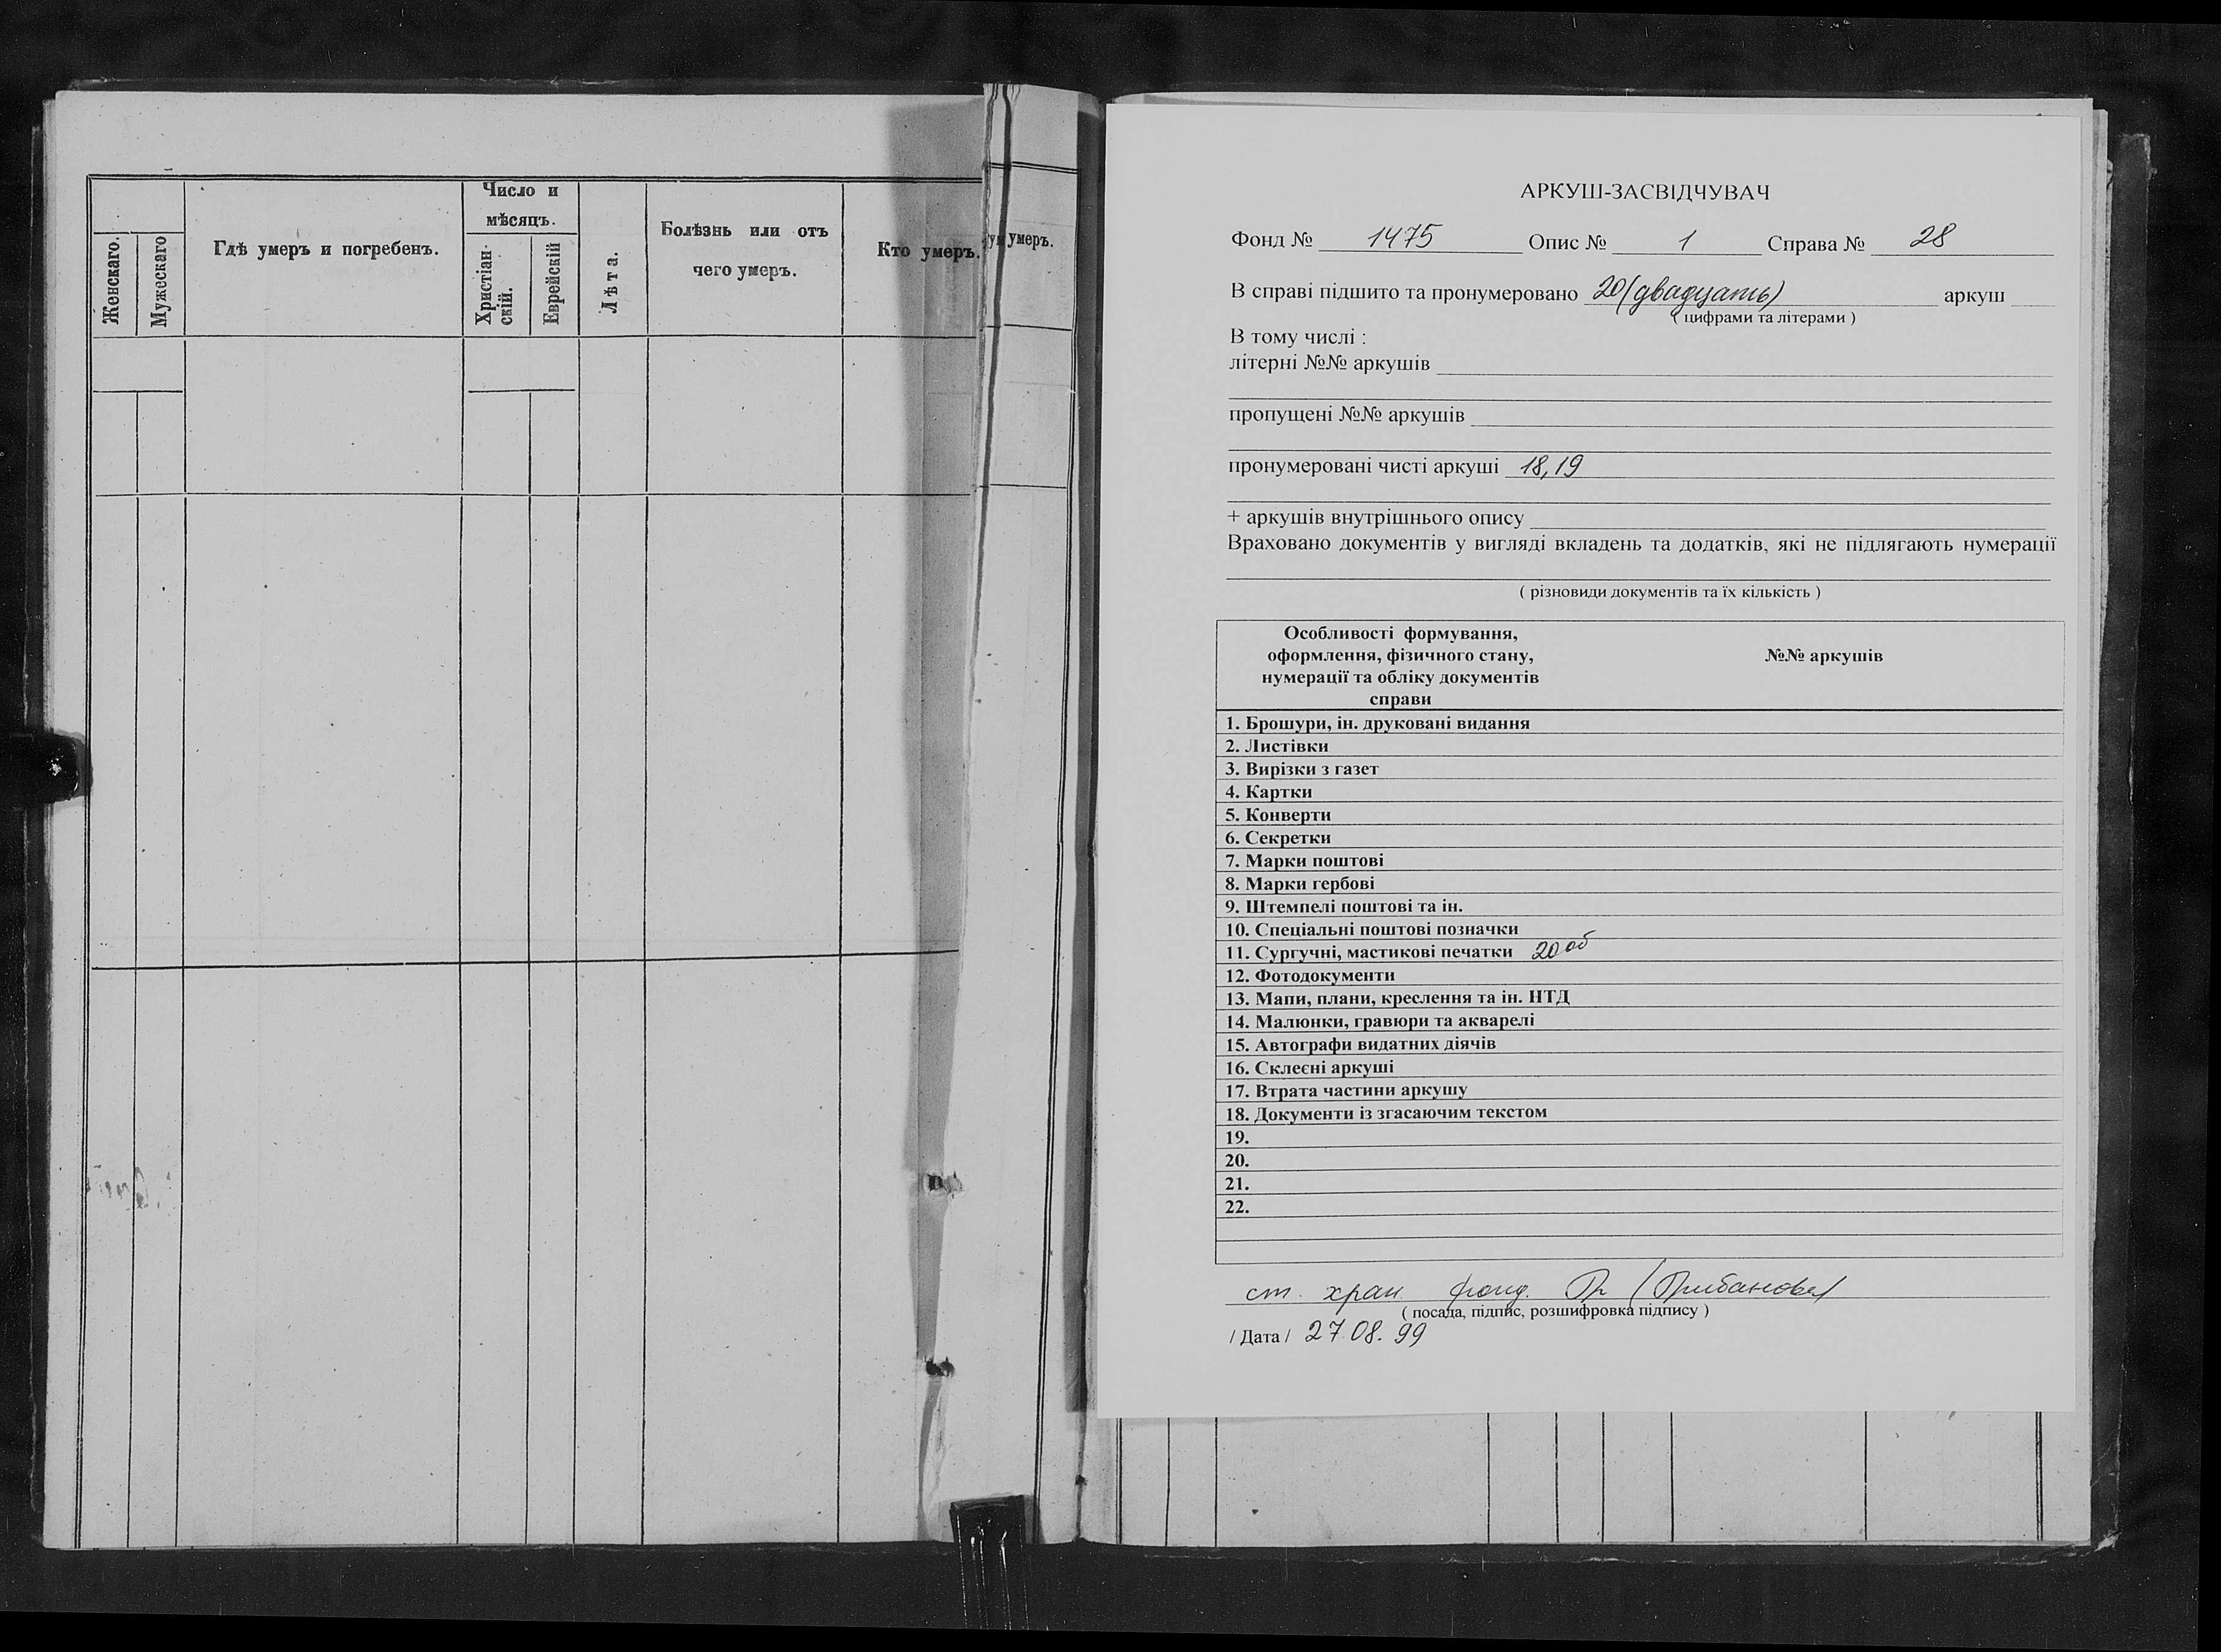 Женскаго.
Мужескаго
Гдѣ умеръ и погребенъ.
Число и
мѣсяцъ.
Христіан-
скій.
Еврейскій
Лѣта.
Болѣзнь или отъ
чего умеръ.
Кто умеръ.
умеръ.
АРКУШ-ЗАСВІДЧУВАЧ
Фонд № 1475 Опис № 1 Справа № 28
В справі підшито та пронумеровано 20 (двадцать) аркуш
( цифрами та літерами )
В тому числі :
літерні №№ аркушів
пропущені №№ аркушів
пронумеровані чисті аркуші 18, 19
+ аркушів внутрішнього опису
Враховано документів у вигляді вкладень та додатків, які не підлягають нумерації
( різновиди документів та їх кількість )
Особливості формування,
оформлення, фізичного стану,
нумерації та обліку документів
справи
№№ аркушів
1. Брошури, ін. друковані видання
2. Листівки
3. Вирізки з газет
4. Картки
5. Конверти
6. Секретки
7. Марки поштові
8. Марки гербові
9. Штемпелі поштові та ін.
10. Спеціальні поштові позначки
11. Сургучні, мастикові печатки 20 об
12. Фотодокументи
13. Мапи, плани, креслення та ін. НТД
14. Малюнки, гравюри та акварелі
15. Автографи видатних діячів
16. Склеєні аркуші
17. Втрата частини аркушу
18. Документи із згасаючим текстом
19.
20.
21.
22.
ст. хран. фонд.
( посада, підпис, розшифровка підпису )
/ Дата / 27.08.99